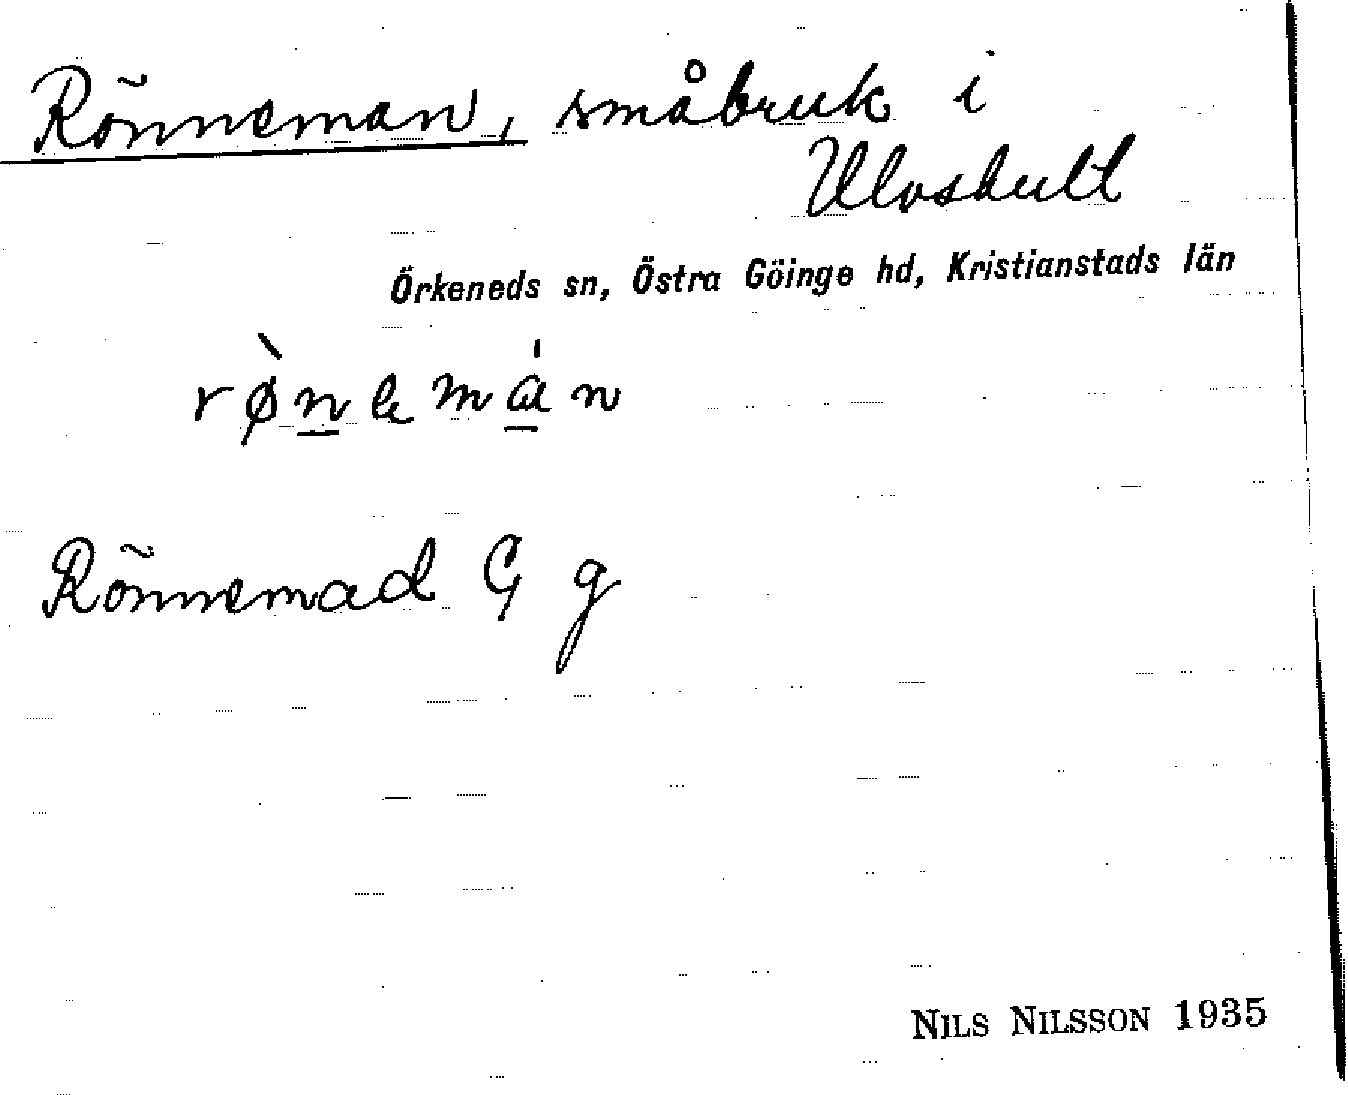 Rönneman, småbruk i
Ulvshult
Örkeneds sn, Östra Göinge hd, Kristianstads län
rø̀nemán
Rönnemad G g
NILS NILSSON 1935